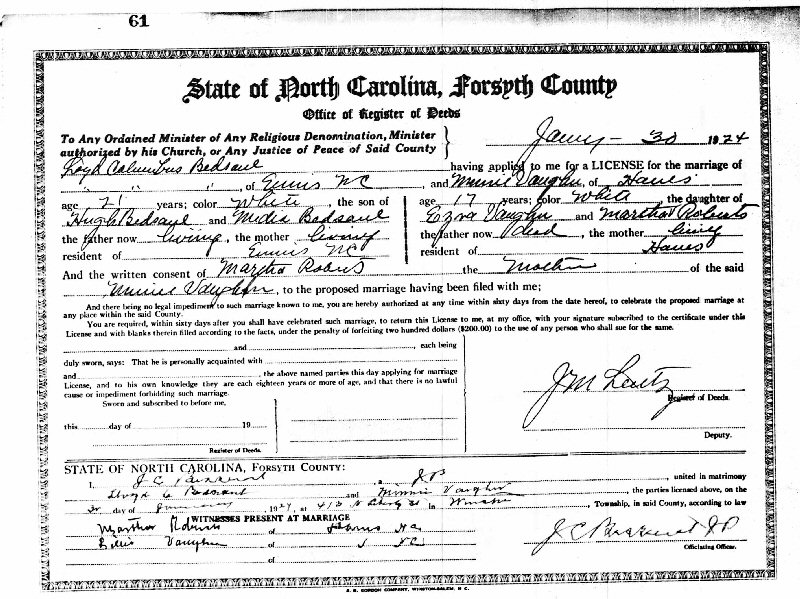 61
State of North Carolina, Forsyth County
Office of Register of Deeds
To Any Ordained Minister of Any Religious Denomination, Minister
authorized by his Church, or Any Justice of Peace of Said County
Jany - 30 1924
Loyd Columbus Bedsaul having applied to me for a LICENSE for the marriage of
" " ", of Ennis NC, and Minnie Vaughn, of Hanes
age 21 years; color White, the son of age 17 years; color White the daughter of
Hugh Bedsaul and Media Bedsaul Ezra Vaughn and Martha Roberts
the father now living, the mother living the father now dead, the mother living
resident of Ennis NC resident of Hanes
And the written consent of Martha the Mother of the said
Minnie Vaughn, to the proposed marriage having been filed with me;
And there being no legal impediment to such marriage known to me, you are hereby authorized at any time within sixty days from the date hereof, to celebrate the proposed marriage at
any place within the said County.
You are required, within sixty days after you shall have celebrated such marriage, to return this License to me, at my office, with your signature subscribed to the certificate under this
License and with blanks therein filled according to the facts, under the penalty of forfeiting two hundred dollars ($200.00) to the use of any person who shall sue for the same.
and , each being
duly sworn, says: That he is personally acquainted with
and , the above named parties this day applying for marriage
License, and to his own knowledge they are each eighteen years or more of age, and that there is no lawful
cause or impediment forbidding such marriage.
Sworn and subscribed to before me,
this day of 19
Register of Deeds.
J M Lentz
Register of Deeds.
Deputy.
STATE OF NORTH CAROLINA, FORSYTH COUNTY:
I, J C , a JP , united in matrimony
Lloyd C and Minnie Vaughn the parties licensed above, on the
day of January 1924, at in Winston, Township, in said County, according to law
WITNESSES PRESENT AT MARRIAGE
Martha of Hanes NC
Vaughn of NC
of
J C JP
Officiating Officer.